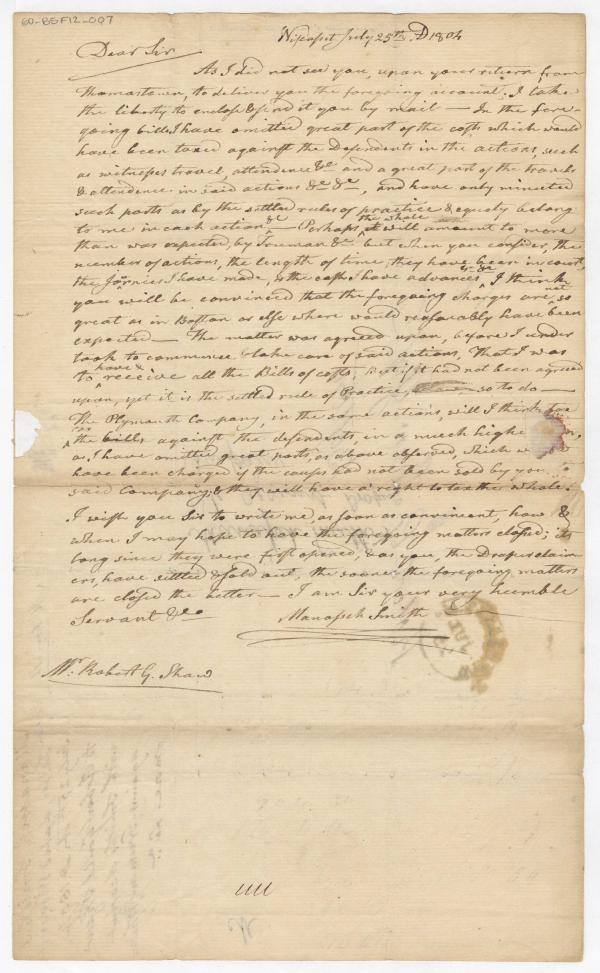 60-BSF12-007
Wiscasset July 25th. AD 1804
Dear Sir
As I did not see you, upon your return from
Thomastown, to deliver you the foregoing account, I take
the liberty to enclose & send it you by mail — In the fore-
going bills I have omitted great part of the costs which would
have been taxed against the Defendents in the actions, such
as witnesses travel, attendence &c and a great part of the travels
& attendence in said actions &c &c, and have only minuted
such parts as by the settled rules of practice & equity belong
to me in each action &c — Perhaps, the whole it will amount to more
than was expected, by Truman &c but when you consider, the
number of actions, the length of time, they have been in court,
the Jornies I have made, & the cash I have advanced &c &c I think
you will be convinced that the foregoing charges are not so
great as in Boston or else where would reasonably have been
expected — The matter was agreed upon, before I under
took to commence & take care of said actions, That I was
to have & receive all the Bills of costs, But if it had not been agreed
upon, yet it is the settled rule of Practice, so to do —
The Plymouth Company, in the same actions, will I think tax
the bills against the defendents, in a much highe
as I have omitted great parts, as above observed, which w
have been charged if the causes had not been sold by you
said Company & they will have a right to tax the whole.
I wish you Sir to write me, as soon as convenient, how &
when I may hope to have the foregoing matters closed; its
long since they were first opened, & as you, the Drapers claim
ers, have settled & sold out, the sooner the foregoing matters
are closed the better — I am Sir your very humble
Servant &c
Manasseh Smith
Mr. Robert G. Shaw